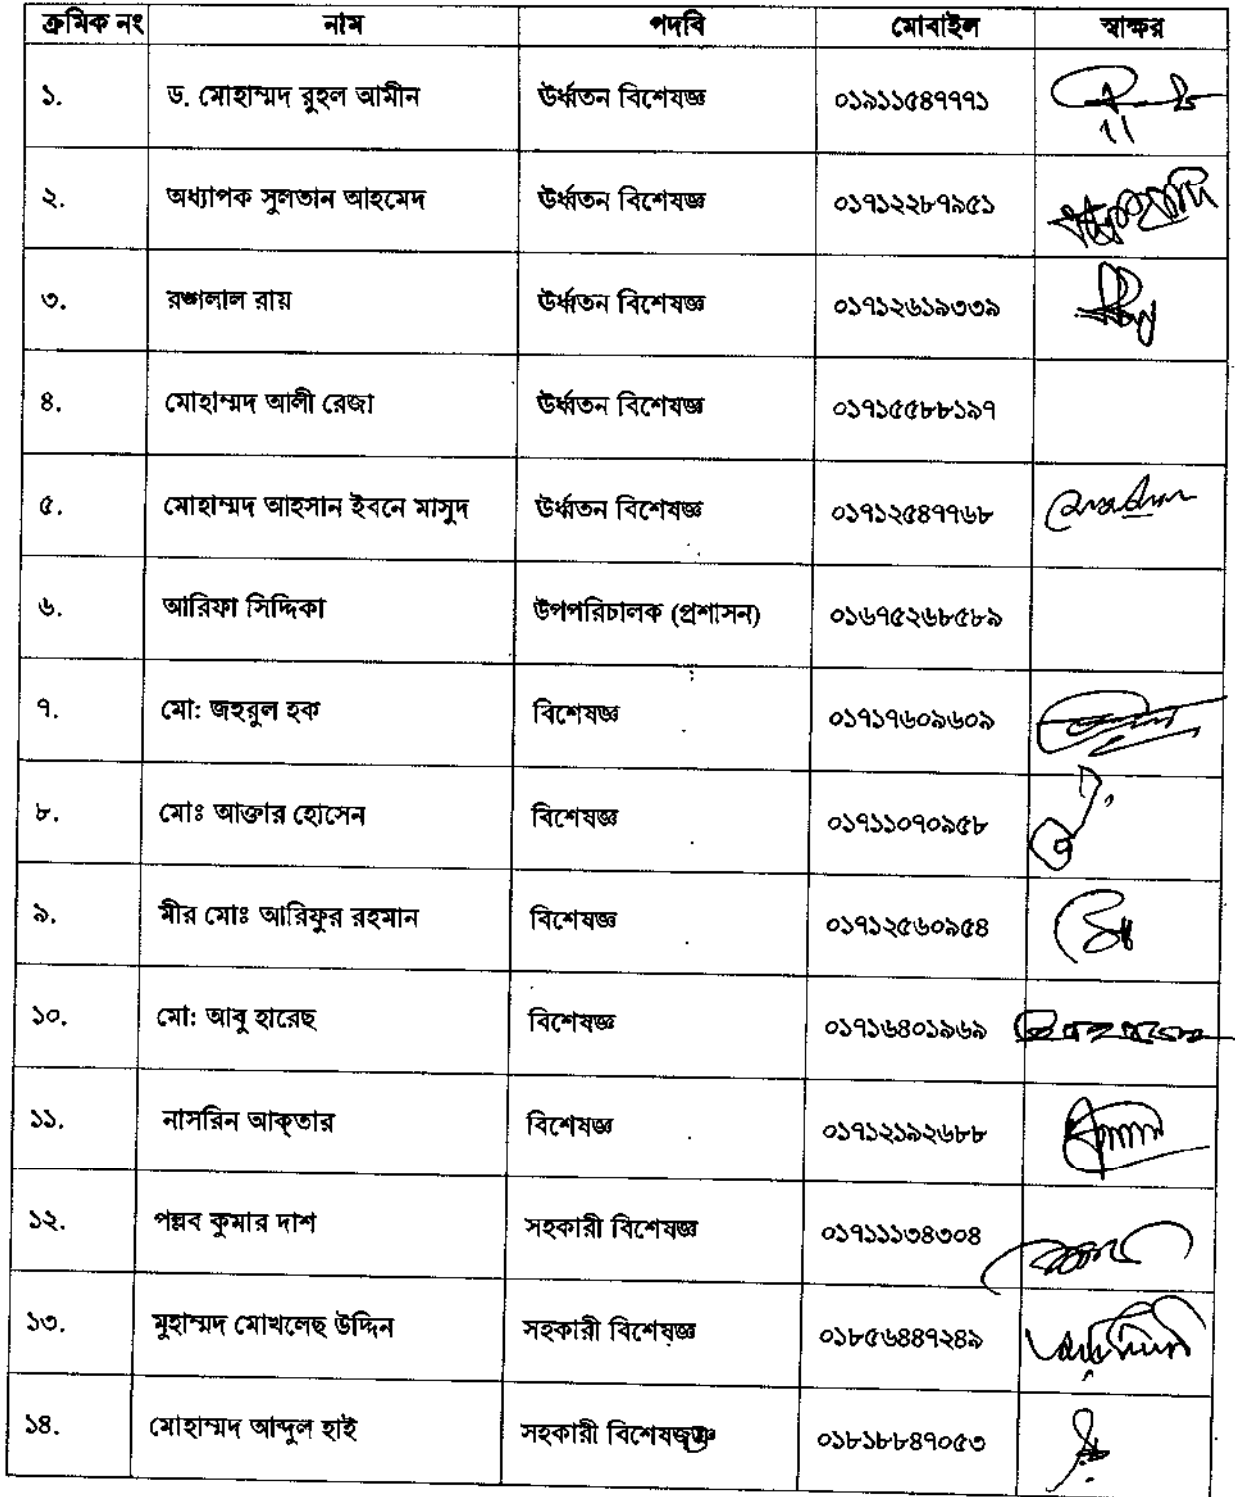 ক্রমিক নং নাম পদবি মোবাইল স্বাক্ষর
১. ড. মোহাম্মদ রুহুল আমীন ঊর্ধ্বতন বিশেষজ্ঞ ০১৯১১৫৪৭৭৭১
২. অধ্যাপক সুলতান আহমেদ ঊর্ধ্বতন বিশেষজ্ঞ ০১৭১২২৮৭৯৫১
৩. রঙ্গলাল রায় ঊর্ধ্বতন বিশেষজ্ঞ ০১৭১২৬১৯৩৩৯
৪. মোহাম্মদ আলী রেজা ঊর্ধ্বতন বিশেষজ্ঞ ০১৭১৫৫৮৮১৯৭
৫. মোহাম্মদ আহসান ইবনে মাসুদ ঊর্ধ্বতন বিশেষজ্ঞ ০১৭১২৫৪৭৭৬৮
৬. আরিফা সিদ্দিকা উপপরিচালক (প্রশাসন) ০১৬৭৫২৬৮৫৮৯
৭. মো: জহুরুল হক বিশেষজ্ঞ ০১৭১৭৬০৯৬০৯
৮. মোঃ আক্তার হোসেন বিশেষজ্ঞ ০১৭১১০৭০৯৫৮
৯. মীর মোঃ আরিফুর রহমান বিশেষজ্ঞ ০১৭১২৫৬০৯৫৪
১০. মো: আবু হারেছ বিশেষজ্ঞ ০১৭১৬৪০১৯৬৯
১১. নাসরিন আক্‌তার বিশেষজ্ঞ ০১৭১২১৯২৬৮৮
১২. পল্লব কুমার দাশ সহকারী বিশেষজ্ঞ ০১৭১১১৩৪৩০৪
১৩. মুহাম্মদ মোখলেছ উদ্দিন সহকারী বিশেষজ্ঞ ০১৮৫৬৪৪৭২৪৯
১৪. মোহাম্মদ আব্দুল হাই সহকারী বিশেষজ্ঞ ০১৮১৮৮৪৭০৫৩